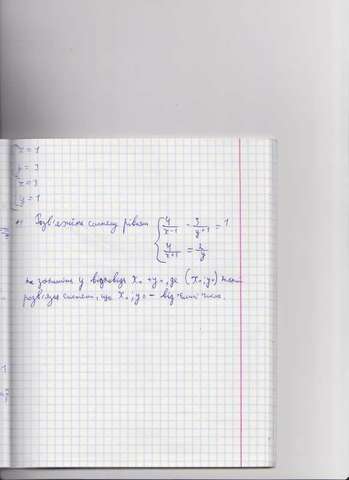 x = 1
y = 3
x = 3
y = 1
Розв'яжіть систему рівнянь { 4/(x-1) - 3/(y+1) = 1
4/(x+1) = 2/y
та запишіть у відповідь x₀ + y₀, де (x₀; y₀) –
розв'язок системи, що x₀, y₀ – від'ємні числа.